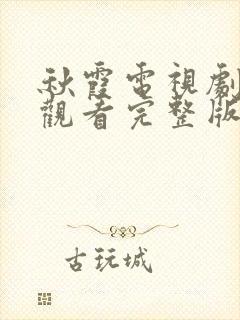 秋霞電視劇
觀看完整版
古玩城